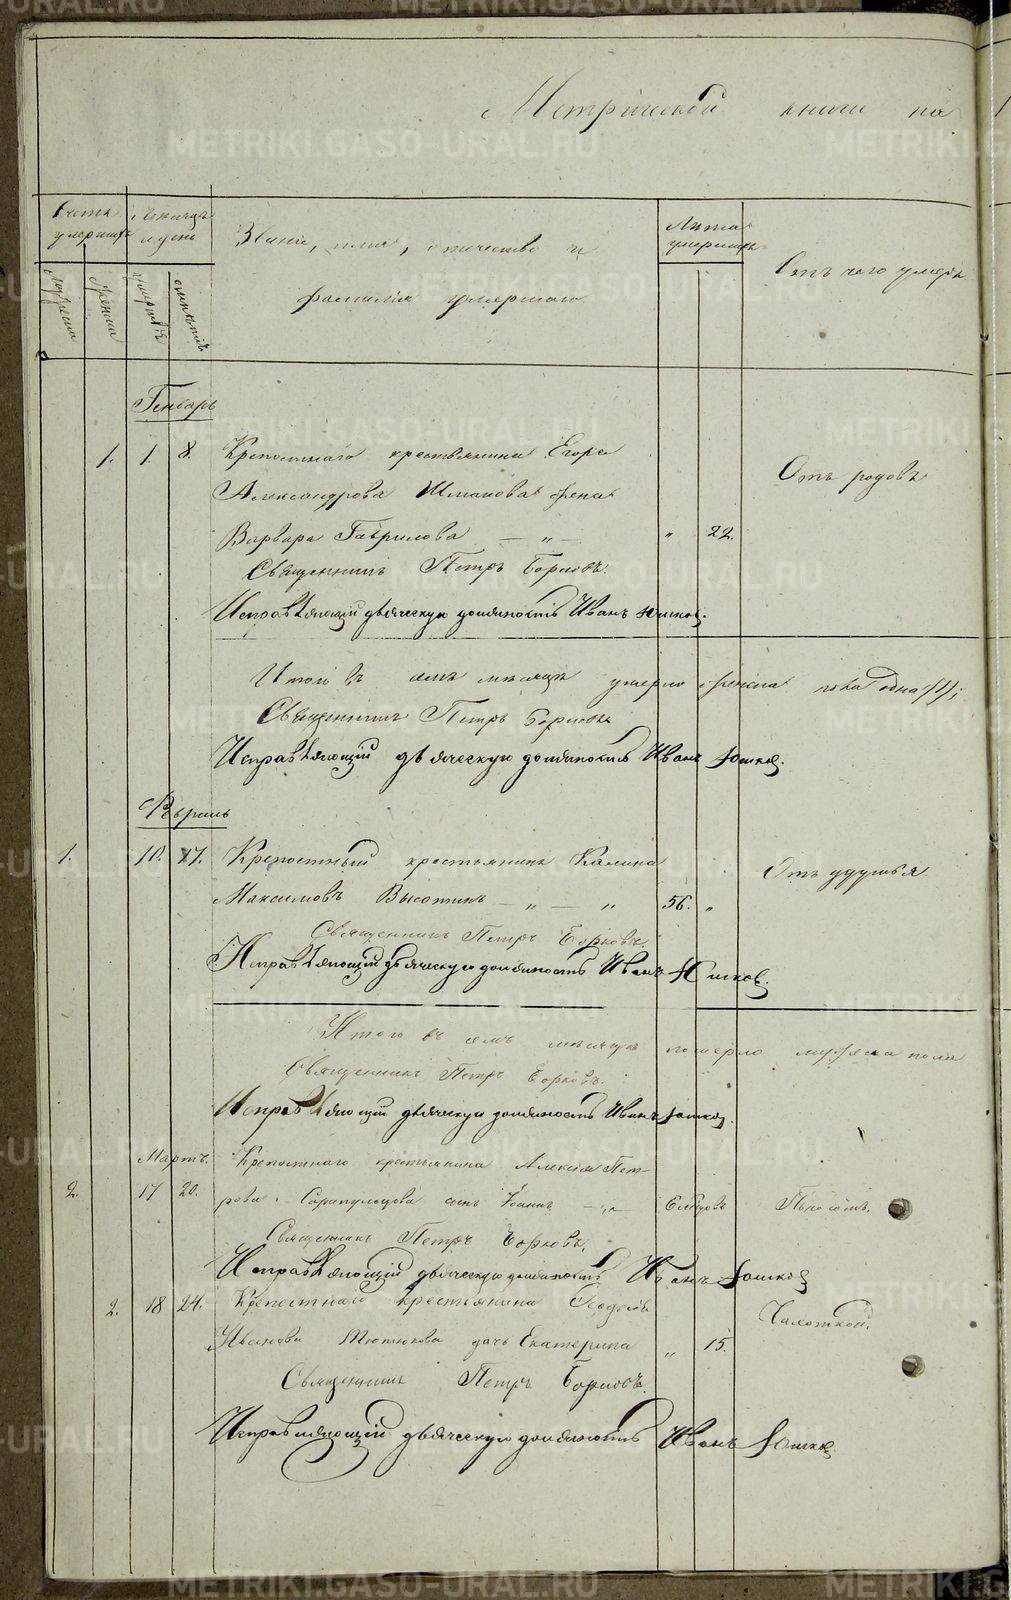 Метрической книги на
Счетъ умершихъ
Мѣсяцъ и день
Званіе, имя, отечество и
фамилія умершаго
Лѣта умершихъ
Отъ чего умеръ
мужеска
женска
смерти
Генварь
1. 1. 8. Крепостнаго крестьянина Егора
Александрова жена
Варвара Гаврилова — „ — „ 22.
Отъ родовъ
Священникъ Петръ Борковъ.
Исправляющій дьяческую должность Иванъ Юшков.
Итого въ семъ мѣсяцѣ умерло женска пола одна (1);
Священникъ Петръ Борковъ
Исправляющій дьяческую должность Иванъ Юшков.
Февраль
1. 10. 17. Крепостный крестьянинъ Калина
Максимовъ Высотинъ — „ — „ 56. „
Отъ удушья
Священникъ Петръ Борковъ.
Исправляющій дьяческую должность Иванъ Юшков.
Итого въ семъ мѣсяцѣ померло мужеска пола
Священникъ Петръ Борковъ.
Исправляющій дьяческую должность Иванъ Юшков.
Мартъ. Крепостнаго крестьянина Алексѣя Пет-
2. 17 20. рова Сарапульцова сынъ Іоаннъ — „ —
Священникъ Петръ Борковъ.
Исправляющій дьяческую должность Иванъ Юшков
2. 18 24. Крепостнаго крестьянина
Иванова Тютюкова дочь Екатерина „ 15.
Чахоткой.
Священникъ Петръ Борковъ.
Исправляющій дьяческую должность Иванъ Юшков
METRIKI.GASO-URAL.RU